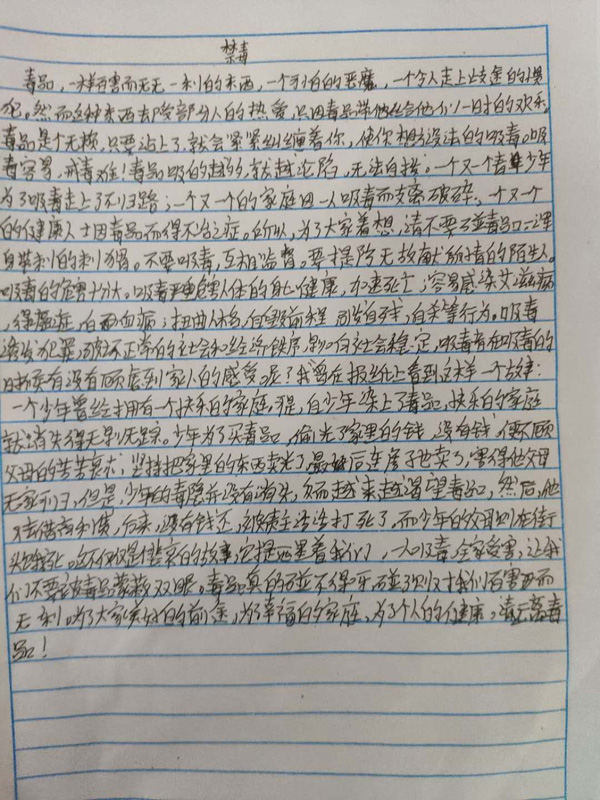 禁毒
毒品,一样百害而无一利的东西,一个可怕的恶魔,一个令人走上
犯。然而这种东西去受部分人的热爱,只因毒品带他给他们以一时的欢乐。
毒品是个无赖,只要沾上了,就会紧紧纠缠着你,使你想方设法的吸毒。吸
毒容易,戒毒难!毒品吸的越多,就越沦陷,无法自拔。一个又一个青少年
为了吸毒走上了不归路;一个又一个的家庭因人吸毒而支离破碎,一个又一个
的健康人士因毒品而得不治之症。所以,为了大家着想,请不要碰毒品这
自带利的刺猬。不要吸毒,互相监督。要提防无故献殷情的陌生人。
吸毒的危害十分大。吸毒严重危害人体的身心健康,加速死亡;容易感染艾滋病
,得癌症,白血病;扭曲人格,自毁前程,引发自残,自杀等行为。吸毒
诱发犯罪,破坏正常的社会和经济秩序,影响社会稳定,吸毒者在吸毒的
时候有没有顾虑到家人的感受呢?我曾在报纸上看到这样一个故事:
一个少年曾经拥有一个快乐的家庭,可是,自少年染上了毒品,快乐的家庭
就消失得无影无踪。少年为了买毒品,偷光了家里的钱,没有钱,便不顾
父母的苦苦哀求,坚持把家里的东西卖光了,最后连房子也卖了,害得他父母
无家可归,但是,少年的毒瘾并没有消失,反而越来越渴望毒品,然后,他
去借高利贷,后来,没有钱还,被债主活活打死了,而少年的父母则在街
头饿死。这不仅是个悲哀的故事,它提醒着我们,一人吸毒,全家受害,让我
们不要被毒品蒙蔽双眼。毒品真的碰不得呀,碰了只对我们百害而
无利。为了大家美好的前途,为了幸福的家庭,为了个人的健康。请远离毒
品!